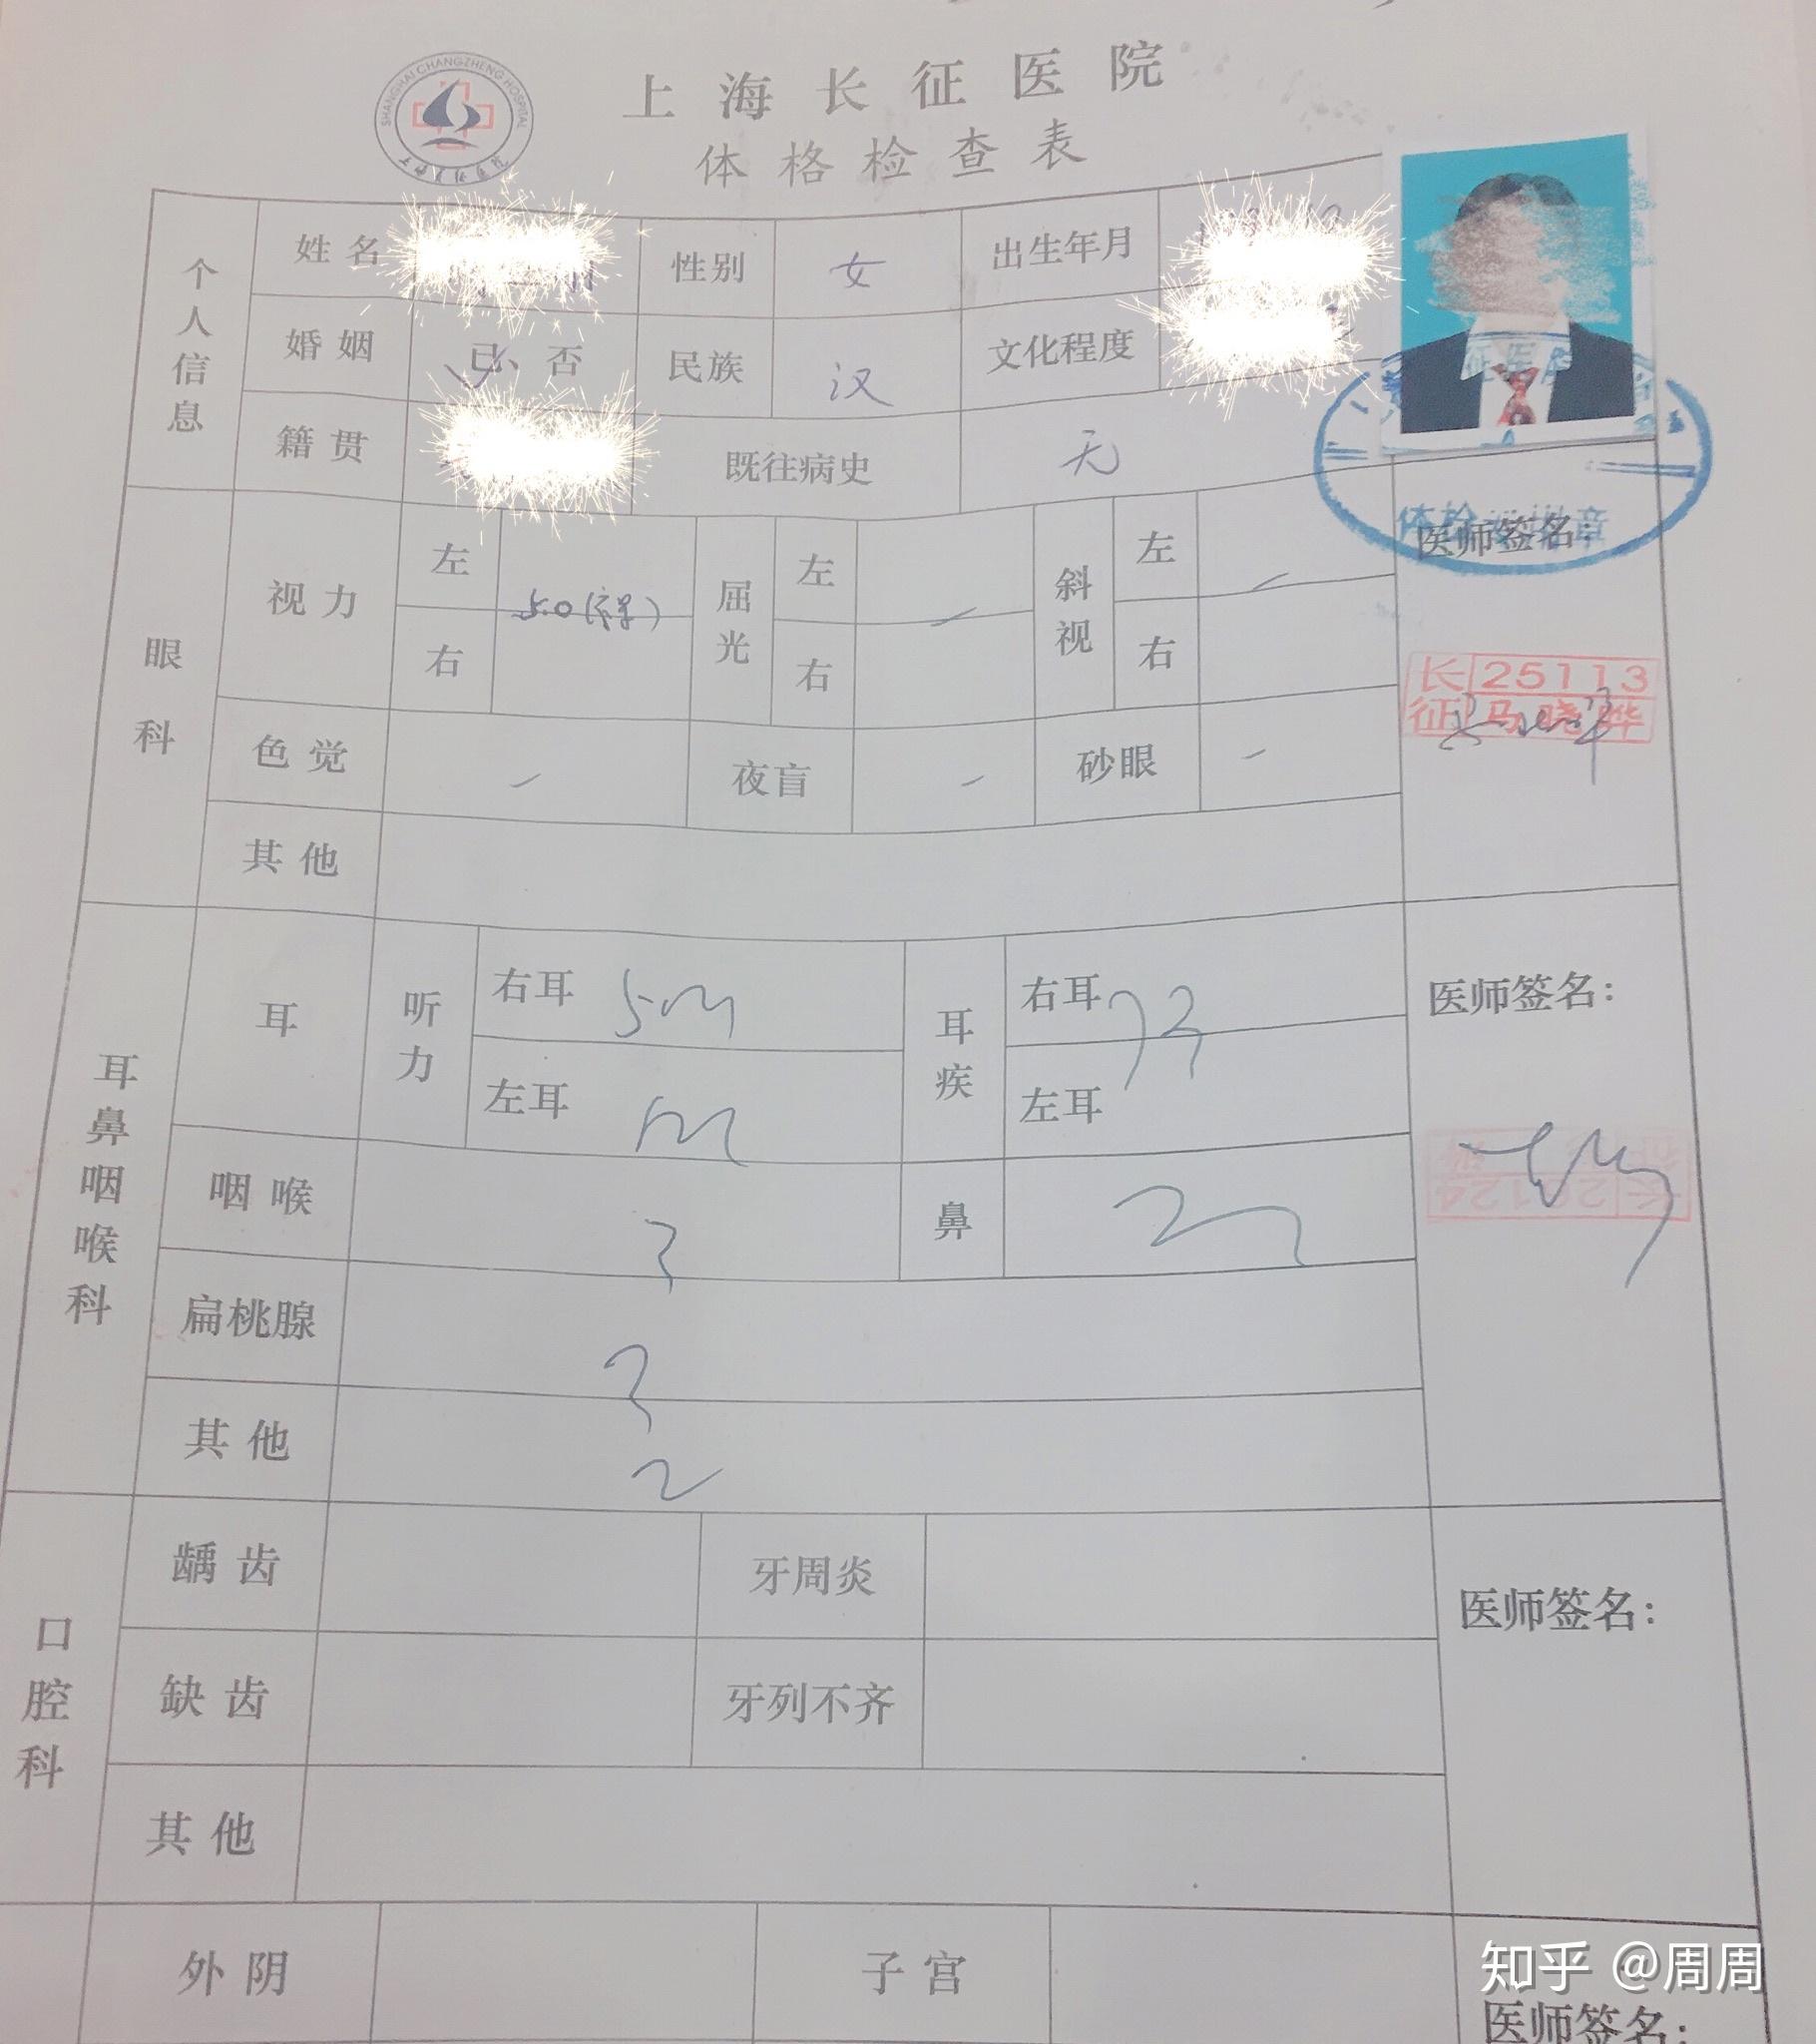 SHANGHAI CHANGZHENG HOSPITAL
上海长征医院
体格检查表
个人信息
姓名 性别 女 出生年月
婚姻 已、否 民族 汉 文化程度
籍贯 既往病史 无
体检专用章
眼科
视力 左 右 5.0 屈光 左 右 斜视 左 右 医师签名:
长征 25113 马晓晔
色觉 夜盲 砂眼
其他
耳鼻咽喉科
耳 听力 右耳 5m 耳疾 右耳 医师签名:
左耳 左耳
咽喉 鼻
长 20124
扁桃腺
其他
口腔科
龋齿 牙周炎 医师签名:
缺齿 牙列不齐
其他
外阴 子宫
知乎 @周周
医师签名: